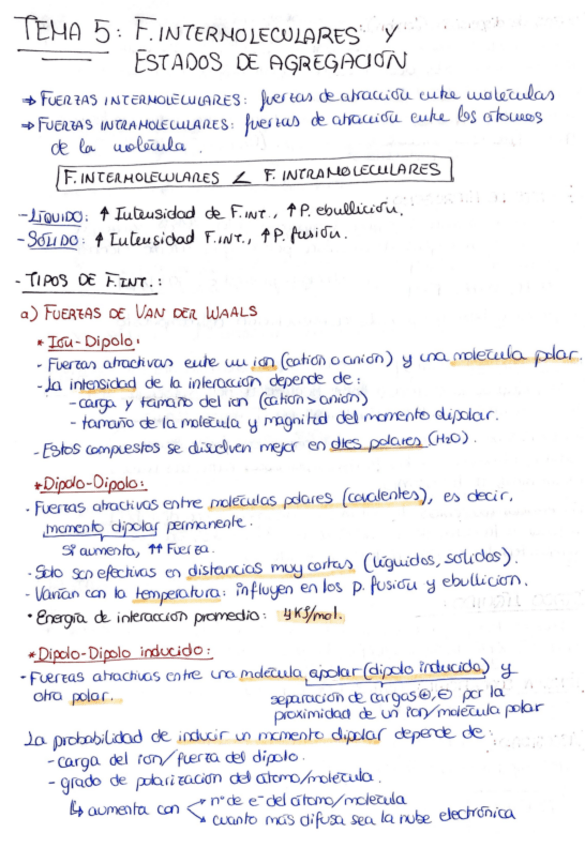 TEMA 5: F. INTERMOLECULARES Y
ESTADOS DE AGREGACIÓN
→ FUERZAS INTERMOLECULARES: fuerzas de atracción entre moléculas
→ FUERZAS INTRAMOLECULARES: fuerzas de atracción entre los átomos
de la molécula.
F. INTERMOLECULARES < F. INTRAMOLECULARES
- LÍQUIDO: ↑ Intensidad de F. INT., ↑ P. ebullición.
- SÓLIDO: ↑ Intensidad F. INT., ↑ P. fusión.
- TIPOS DE F. INT.:
a) FUERZAS DE VAN DER WAALS
* Ion-Dipolo:
- Fuerzas atractivas entre un ion (catión o anión) y una molécula polar.
- La intensidad de la interacción depende de:
- carga y tamaño del ion (catión > anión)
- tamaño de la molécula y magnitud del momento dipolar.
- Estos compuestos se disuelven mejor en dtes polares (H2O).
* Dipolo-Dipolo:
· Fuerzas atractivas entre moléculas polares (covalentes), es decir,
momento dipolar permanente.
Si aumenta, ↑↑ Fuerza.
- Solo son efectivas en distancias muy cortas (líquidos, sólidos).
- Varían con la temperatura: influyen en los p. fusión y ebullición.
· Energía de interacción promedio: 4 KJ/mol.
* Dipolo-Dipolo inducido:
- Fuerzas atractivas entre una molécula apolar (dipolo inducido) y
otra polar.
separación de cargas ⊕, ⊖ por la
proximidad de un ion/molécula polar
La probabilidad de inducir un momento dipolar depende de:
- carga del ion/fuerza del dipolo.
- grado de polarización del átomo/molécula.
↳ aumenta con
nº de e⁻ del átomo/molécula
cuanto más difusa sea la nube electrónica